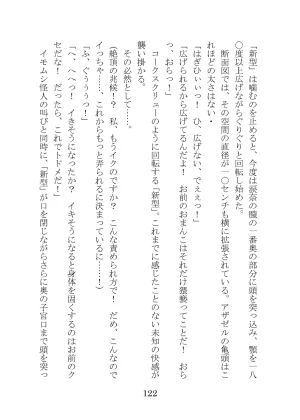 「新型」は噛むのを止めると、今度は涙奈の膣の一番奥の部分に頭を突っ込み、顎を一八
〇度以上広げながらぐりぐりと回転し始めた。
断面図では、その空間の直径が一〇センチも横に拡張されている。アザゼルの亀頭はこ
れほどの太さはない。
「はぎひぃぃっ！　ひ、広げない、でぇぇっ！」
「広げられるから広げてるんだよ！　お前のおまんこはそれだけ猥褻ってことだ！　おら
っ、おらっ！」
コークスクリューのように回転する「新型」。これまでに感じたことのない未知の快感が
襲い掛かる。
その必然として――。
（絶頂の兆候！？　私、もうイクのですか？　こんな責められ方で！　だめ、こんなので
イっちゃ……、これからもっと弄られるに決まっているに……！）
「ふ、ぐぅぅぅっ！」
「へ、へへっ！　イきそうになったか？　イキそうになると身体を固くするのはお前のク
セだな！　だったら、これでトドメだ！」
イモムシ怪人の叫びと同時に、「新型」が口を閉じながらさらに奥の子宮口まで頭を突っ
122